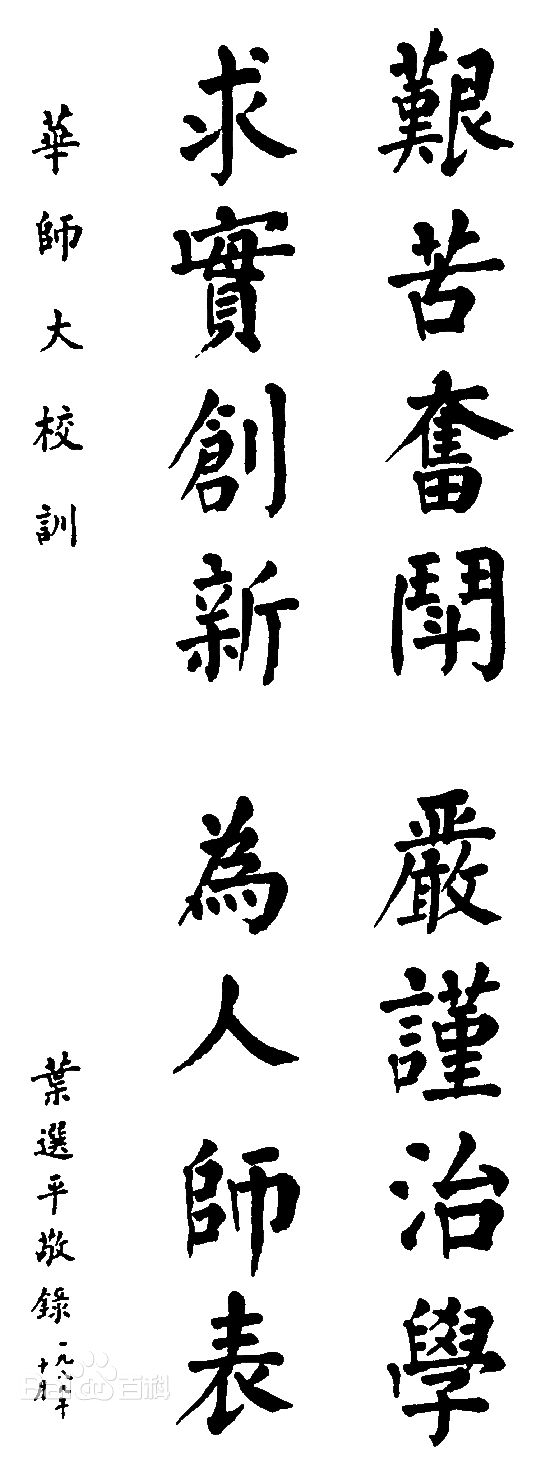 艱苦奮鬥　嚴謹治學
求實創新　為人師表
華師大校訓
葉選平敬錄
一九八八年
十月
Bai 百科